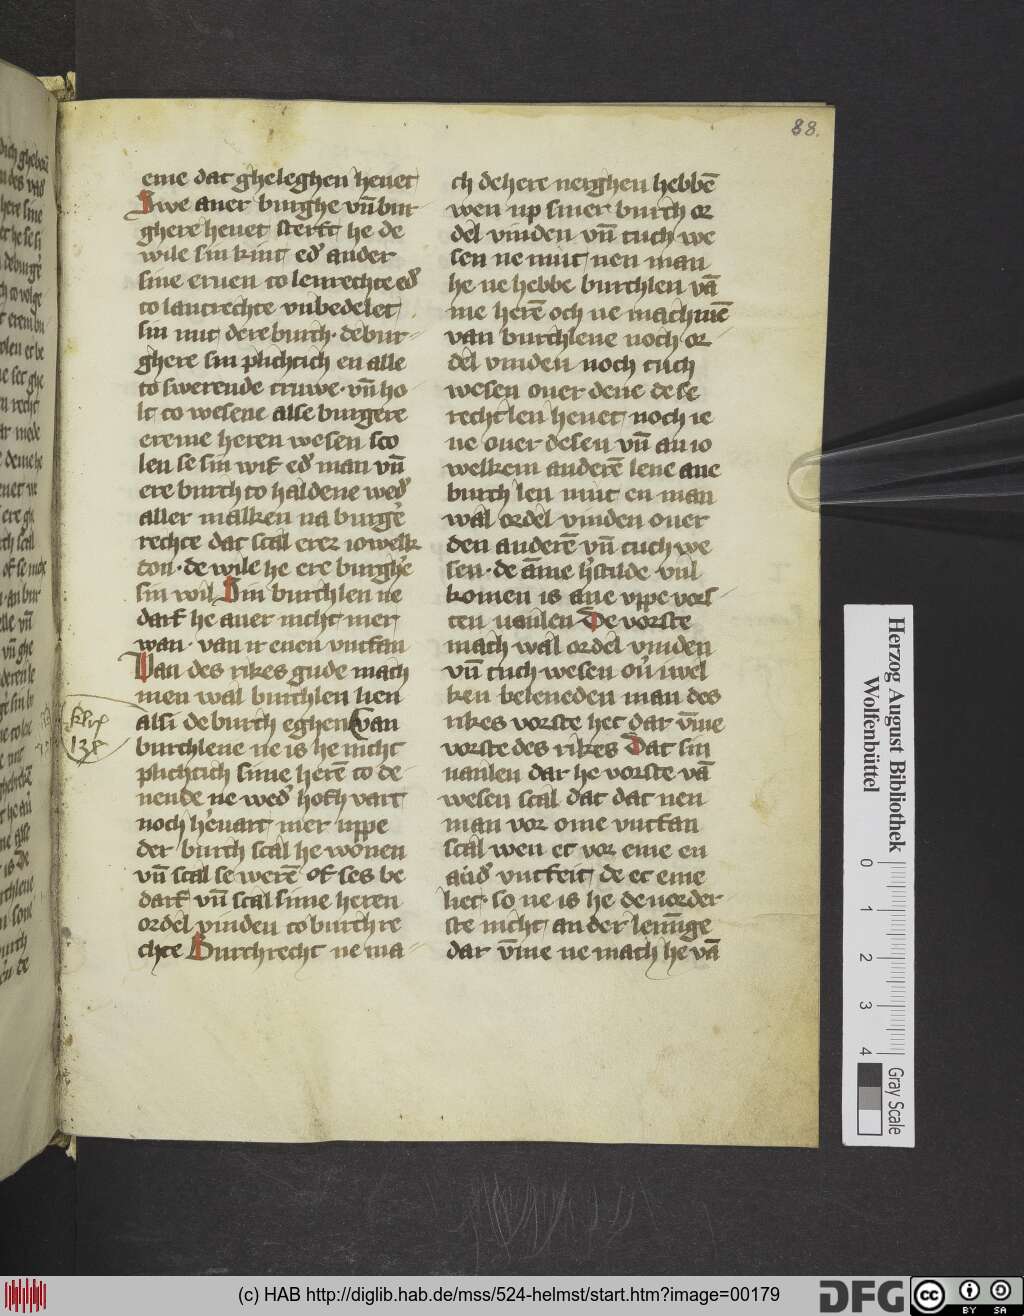 88.
eme dat gheleghen heuet
Swe auer burghe vn̄ bur
ghere heuet sterft he de
wile sin kint ed͛ ander
sine eruen to lenrechte ed͛
to lantrechte vnbedelet
sin mit dere burch · de bur-
ghere sin plichtich en alle
to swerende truwe · vn̄ ho
lt to wesene alse burgere
ereme heren wesen sco
len se sin wif ed͛ man vn̄
ere burch to haldene wed͛
aller malken na burge͛
rechte dat scal erer iowelk
don · de wile he ere burgh͛e
sin wil Sin burchlen ne
darf he auer nicht mer
wan · van ir enen vntfan
Van des rikes gude mach
men wal burchlen lien
alsi de burch eghen van
burchlene ne is he nicht
plichtich sime herē to de-
nende ne wed͛ hofh vart
noch h͛euart mer uppe
der burch scal he wonen
vn̄ scal se werē of ses be
darf vn̄ scal sime heren
ordel vinden to burchre
chte Burchrecht ne ma-
138
ch de here nerghen hebbē
wen up siner burch or
del vinden vn̄ tuch we
sen ne mut nen man
he ne hebbe burchlen vā
me herē och ne mach mē
van burchlene noch or-
del vinden noch tuch
wesen ouer dene de se
recht len heuet noch ie
ne ouer desen vn̄ an io
welkem anderē lene ane
burch len mut en man
wal ordel vinden ouer
den anderē vn̄ tuch we
sen · de āme h͛scilde vul
komen is ane vppe vors
ten uanlen De vorste
mach wal ordel vinden
vn̄ tuch wesen ou͛ iwel
ken beleneden man des
rikes vorste het dar v̄me
vorste des rikes Dat sin
uanlen dar he vorste vā
wesen scal dat dat nen
man vor ome vntfan
scal wen et vor eme en
and͛ vntfeit de et eme
liet · so ne is he de uorder
ste nicht an der lenūge
dar v̄me ne mach he vā
Herzog August Bibliothek
Wolfenbüttel
0 1 2 3 4
Gray Scale
(c) HAB http://diglib.hab.de/mss/524-helmst/start.htm?image=00179
DFG
cc BY SA